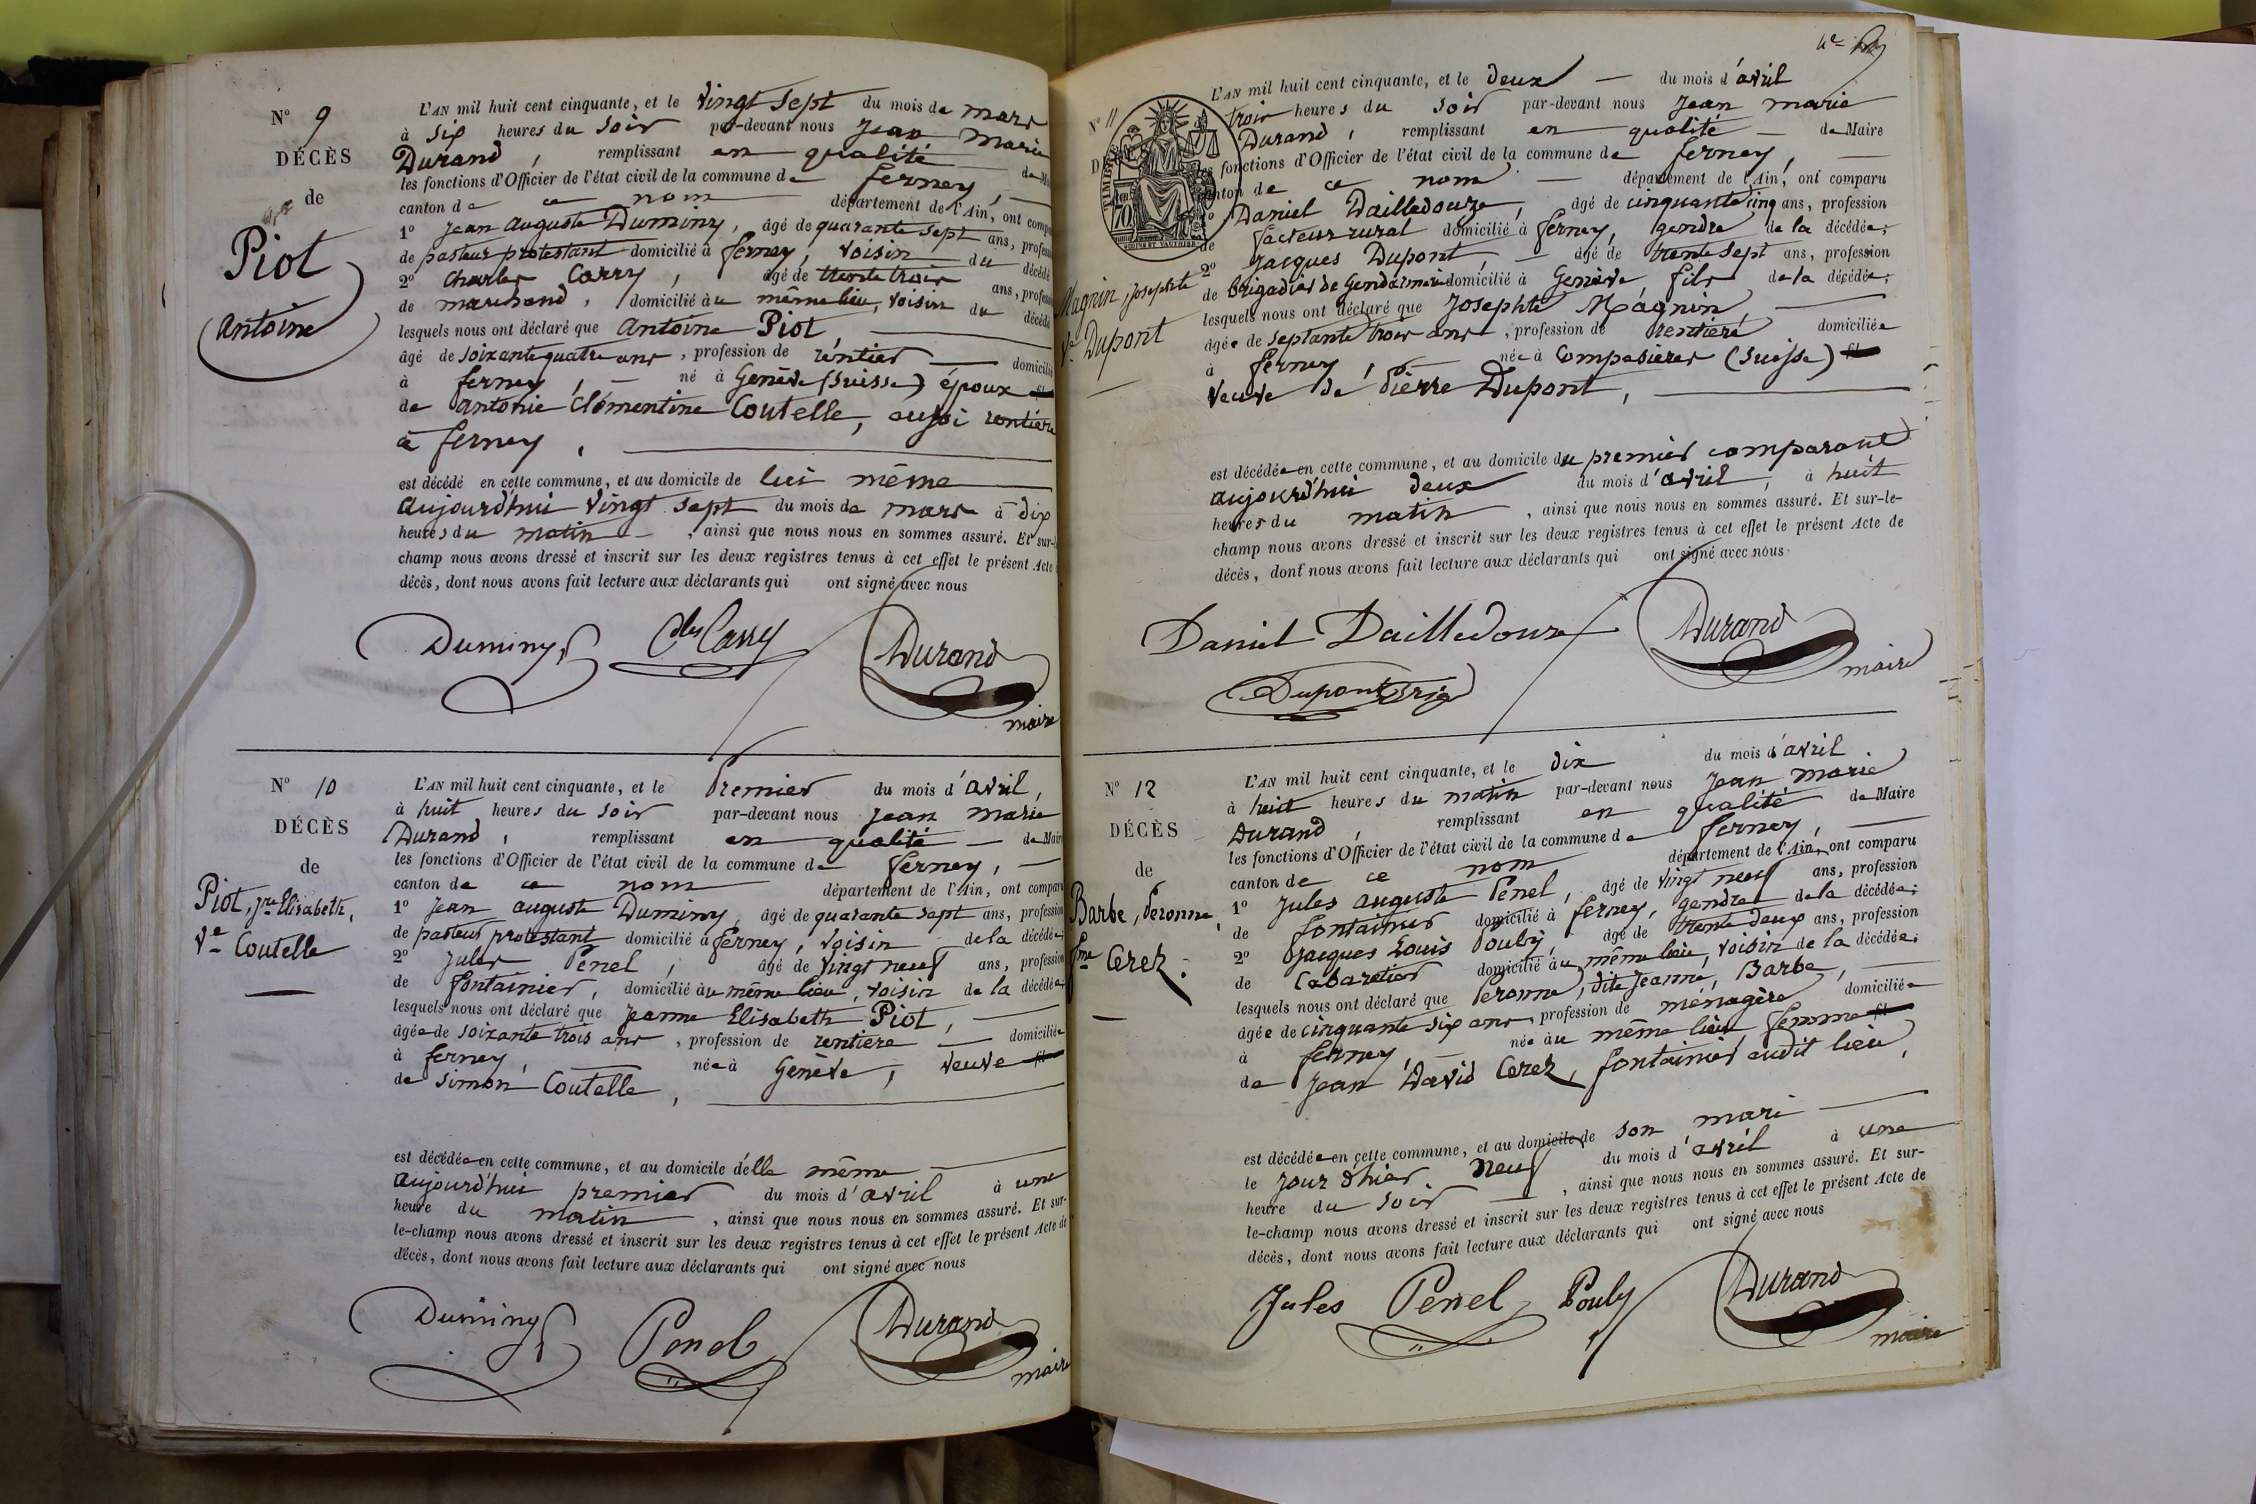 N° 9
DÉCÈS
de
Piot
Antoine
L'AN mil huit cent cinquante, et le vingt sept du mois de mars
à six heures du soir par-devant nous Jean Marie
Durand, remplissant en qualité de Maire
les fonctions d'Officier de l'état civil de la commune de ferney,
canton de ce nom département de l'Ain, ont comparu
1° Jean Auguste Duminy, âgé de quarante sept ans, profession
de pasteur protestant domicilié à ferney, voisin du décédé
2° Charles Carry, âgé de trente trois ans, profession
de marchand, domicilié au même lieu, voisin du décédé
lesquels nous ont déclaré que Antoine Piot
âgé de soixante quatre ans, profession de rentier domicilié
à ferney, né à Genève (Suisse) époux fil
de antonie Clémentine Coutelle, aussi rentière
à ferney,
est décédé en cette commune, et au domicile de lui même
aujourd'hui vingt sept du mois de mars à dix
heures du matin, ainsi que nous nous en sommes assuré. Et sur-le-
champ nous avons dressé et inscrit sur les deux registres tenus à cet effet le présent Acte
décès, dont nous avons fait lecture aux déclarants qui ont signé avec nous
Duminy Chs Carry Durand
maire
N° 10
DÉCÈS
de
Piot, Jne Elisabeth,
Ve Coutelle
L'AN mil huit cent cinquante, et le Premier du mois d'avril,
à huit heures du soir par-devant nous Jean Marie
Durand, remplissant en qualité de Maire
les fonctions d'Officier de l'état civil de la commune de ferney,
canton de ce nom département de l'Ain, ont comparu
1° Jean auguste Duminy, âgé de quarante sept ans, profession
de pasteur protestant domicilié à ferney, voisin de la décédée
2° Jules Penel, âgé de vingt neuf ans, profession
de fontainier, domicilié au même lieu, voisin de la décédée
lesquels nous ont déclaré que Jeanne Elisabeth Piot,
âgée de soixante trois ans, profession de rentière domiciliée
à ferney, née à Genève, veuve fil
de Simon Coutelle,
est décédée en cette commune, et au domicile d'elle même
aujourd'hui premier du mois d'avril à une
heure du matin, ainsi que nous nous en sommes assuré. Et sur-
le-champ nous avons dressé et inscrit sur les deux registres tenus à cet effet le présent Acte de
décès, dont nous avons fait lecture aux déclarants qui ont signé avec nous
Duminy Penel Durand
maire
N° 11
Magnin, Josephte
Ve Dupont
L'AN mil huit cent cinquante, et le deux du mois d'avril
trois heures du soir par-devant nous Jean Marie
Durand, remplissant en qualité de Maire
fonctions d'Officier de l'état civil de la commune de ferney,
canton de ce nom département de l'Ain, ont comparu
Daniel Dailledouze, âgé de cinquante cinq ans, profession
de facteur rural domicilié à ferney, gendre de la décédée;
2° Jacques Dupont, âgé de trente sept ans, profession
de Brigadier de Gendarmerie domicilié à Genève fils de la décédée;
lesquels nous ont déclaré que Josephte Magnin,
âgée de septante trois ans, profession de rentière domiciliée
à ferney, née à Compesières (Suisse) fil
veuve de Pierre Dupont,
est décédée en cette commune, et au domicile du premier comparant
aujourd'hui deux du mois d'avril, à huit
heures du matin, ainsi que nous nous en sommes assuré. Et sur-le-
champ nous avons dressé et inscrit sur les deux registres tenus à cet effet le présent Acte de
décès, dont nous avons fait lecture aux déclarants qui ont signé avec nous
Daniel Dailledouze Durand
maire
Dupont Brig
N° 12
DÉCÈS
de
Barbe, Peronne,
fme Cerez.
L'AN mil huit cent cinquante, et le dix du mois d'avril
à huit heures du matin par-devant nous Jean Marie
Durand, remplissant en qualité de Maire
les fonctions d'Officier de l'état civil de la commune de ferney,
canton de ce nom département de l'Ain, ont comparu
1° Jules auguste Penel, âgé de vingt neuf ans, profession
de fontainier domicilié à ferney, gendre de la décédée;
2° Jacques Louis Pouly, âgé de trente deux ans, profession
de Cabaretier domicilié au même lieu, voisin de la décédée;
lesquels nous ont déclaré que Peronne, dite Jeanne, Barbe,
âgée de cinquante six ans, profession de ménagère domiciliée
à ferney, née au même lieu femme fil
de Jean David Cerez, fontainier audit lieu,
est décédée en cette commune, et au domicile de son mari
le jour d'hier neuf du mois d'avril à une
heure du soir, ainsi que nous nous en sommes assuré. Et sur-
le-champ nous avons dressé et inscrit sur les deux registres tenus à cet effet le présent Acte de
décès, dont nous avons fait lecture aux déclarants qui ont signé avec nous
Jules Penel Pouly Durand
maire